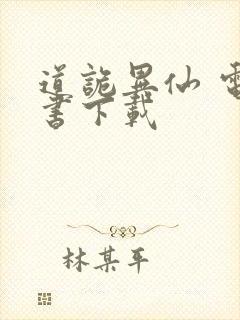 道詭異仙 電
書下載
林某平